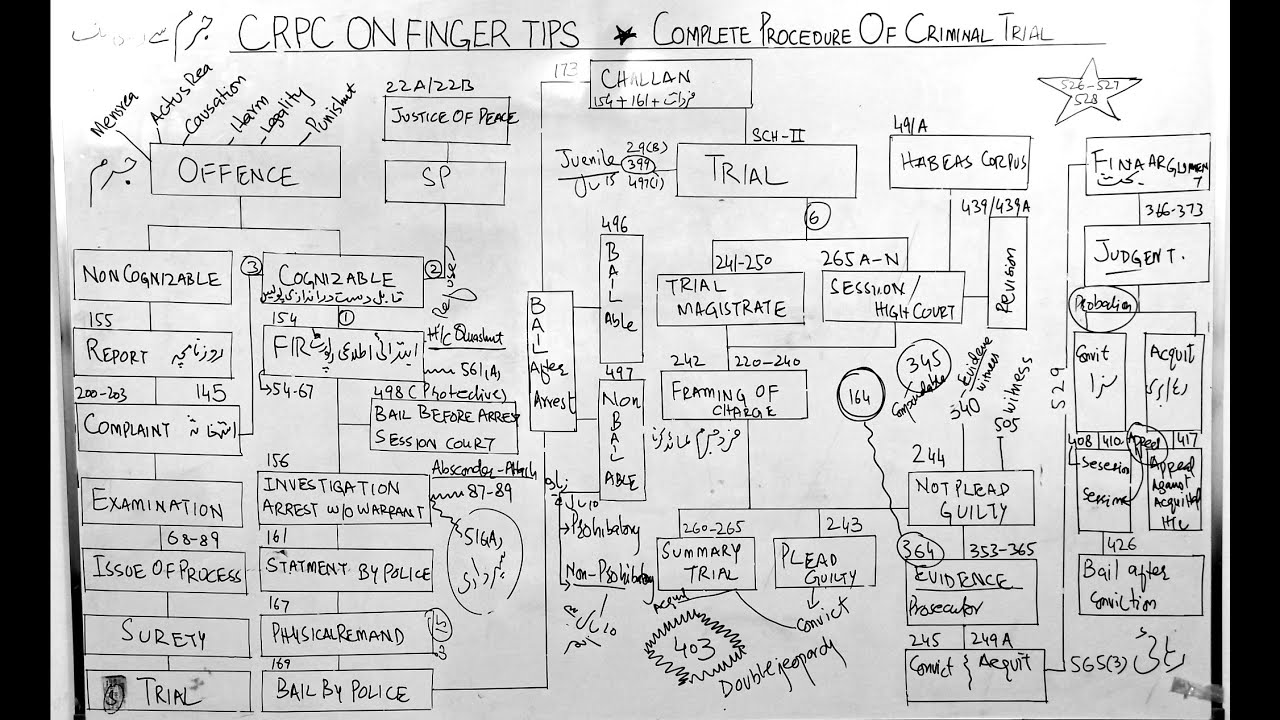 CRPC ON FINGER TIPS ★ COMPLETE PROCEDURE OF CRIMINAL TRIAL
Mensrea
Actus Rea
Causation
Harm
Legality
Punishmt
جرم
OFFENCE
22A/22B
JUSTICE OF PEACE
SP
NON COGNIZABLE
155
REPORT روزنامچہ
200-203
145
COMPLAINT استغاثہ
EXAMINATION
68-89
ISSUE OF PROCESS
SURETY
TRIAL
3
COGNIZABLE
2
قابل دست اندازی پولیس
154
1
FIR ابتدائی اطلاعی رپورٹ
H/C Quashmt
561(A)
54-67
498 (Protective)
BAIL BEFORE ARREST
SESSION COURT
156
INVESTIGATION
ARREST W/O WARRANT
Absconder-Attach
87-89
516(A)
سپرداری
161
STATMENT BY POLICE
167
PHYSICAL REMAND
169
BAIL BY POLICE
173
CHALLAN
154+161+
SCH-II
Juvenile
29(B)
399
497(1)
15 سال
TRIAL
6
BAIL After Arrest
496
BAILAble
497
Non BAILABLE
10 سال
Prohibatory
Non-Prohibatory
10 سال
241-250
TRIAL
MAGISTRATE
265 A-N
SESSION/
HIGH COURT
491/A
HABEAS CORPUS
439/439A
Revision
242
220-240
FRAMING OF
CHARGE
فرد جرم عائد کرنا
164
345
Compoundable
Evideve
540 witness
505 witness
244
NOT PLEAD
GUILTY
260-265
SUMMARY
TRIAL
243
PLEAD
GUILTY
Acquit
Convict
403
Double jeopardy
364
353-365
EVIDENCE
Prosecutor
245
249A
Convict } Acquit
565(3)
526-527
528
FINAARGUMEN
T
بحث
366-373
JUDGENT.
Probation
529
Convit
سزا
Acquit
408
410
Appeal
417
Sesesion
Sessime
Appeal
Against
Acquittal
H/C
426
Bail after
Conviction